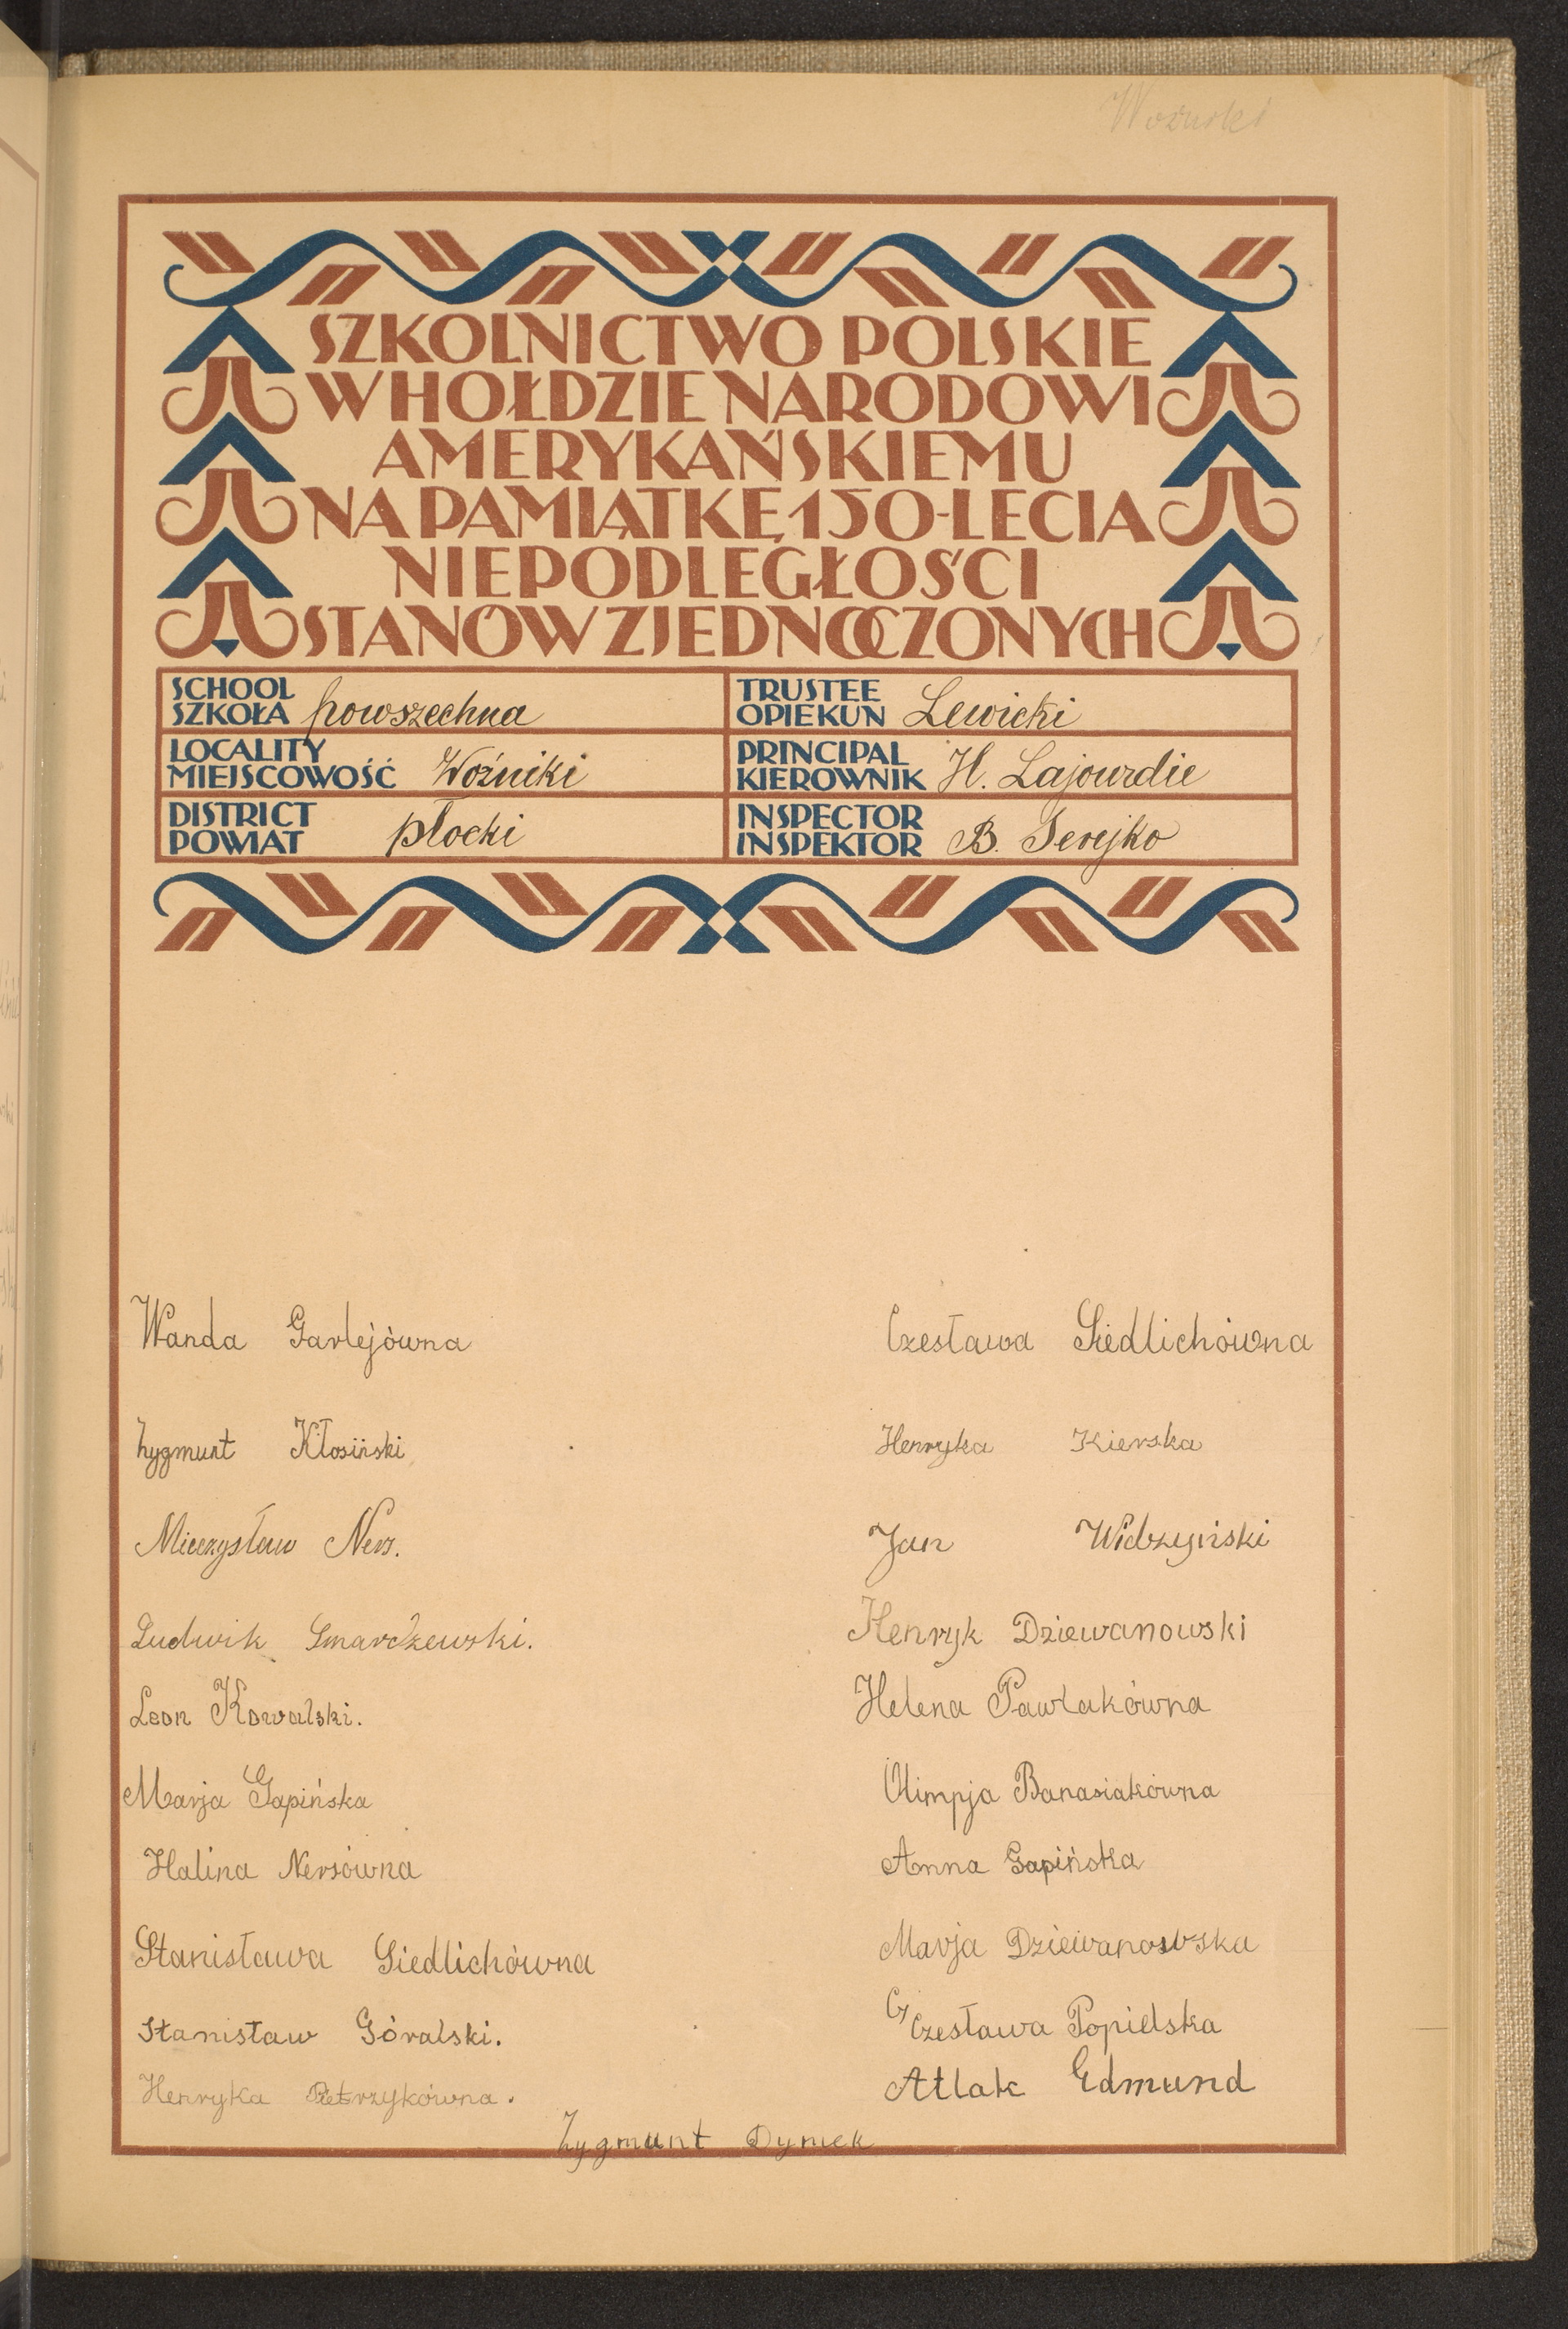 Woźniki
SZKOLNICTWO POLSKIE
W HOŁDZIE NARODOWI
AMERYKAŃSKIEMU
NA PAMIĄTKĘ 150-LECIA
NIEPODLEGŁOŚCI
STANÓW ZJEDNOCZONYCH
SCHOOL
SZKOŁA powszechna
TRUSTEE
OPIEKUN Lewicki
LOCALITY
MIEJSCOWOŚĆ Woźniki
PRINCIPAL
KIEROWNIK H. Lajourdie
DISTRICT
POWIAT płocki
INSPECTOR
INSPEKTOR B. Serejko
Wanda Garlejówna
Czesława Siedlichówna
Zygmunt Kłosiński
Henryka Kierska
Mieczysław Ners.
Jan Widzyński
Ludwik Smardzewski.
Henryk Dziewanowski
Leon Kowalski.
Helena Pawlakówna
Marja Gapińska
Olimpja Banasiakówna
Halina Nersówna
Anna Gapińska
Stanisława Siedlichówna
Marja Dziewanowska
Stanisław Góralski.
Czesława Popielska
Henryka Pietrzykówna.
Atlak Edmund
Zygmunt Dymek